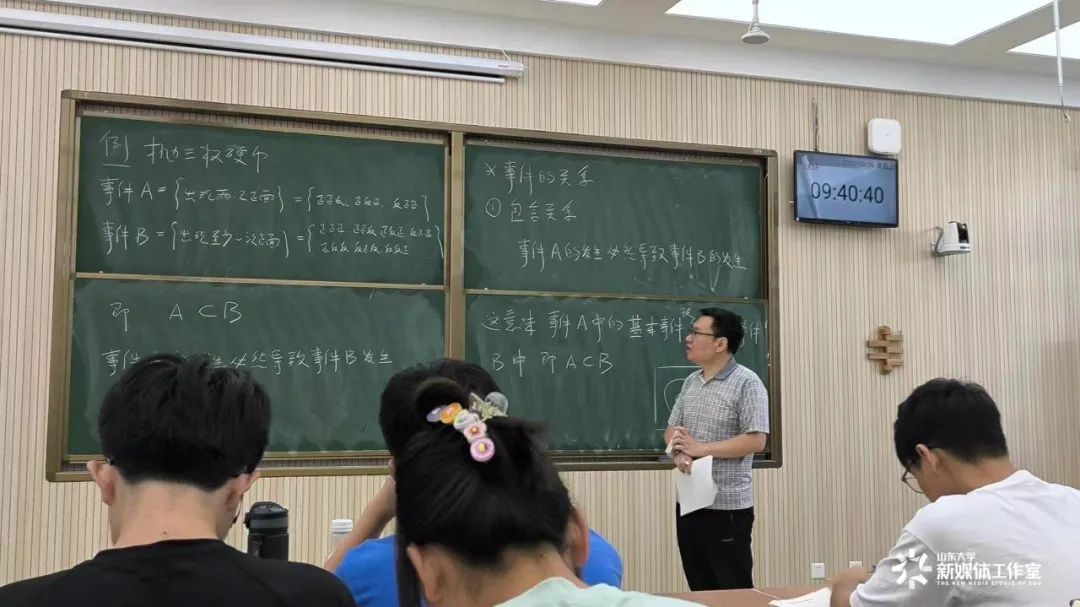 例 抛三枚硬币
事件 A = {出现两次正面} = {正正反, 正反正, 反正正}
事件 B = {出现至少一次正面} = {正正正, 正正反, 正反正, 反正正
正反反, 反正反, 反反正}
即 A ⊂ B
事件 必然导致事件 B 发生
* 事件的关系
① 包含关系
事件 A 的发生必然导致事件 B 的发生
这意味 事件 A 中的 基本事件 事件
B 中 即 A ⊂ B
09:40:40
山东大学
新媒体工作室
THE NEW MEDIA STUDIO OF SDU